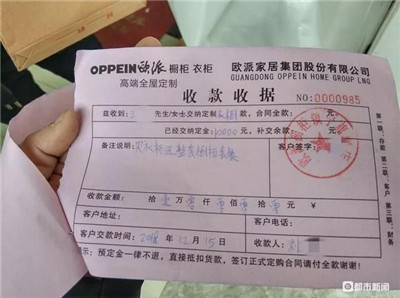 OPPEIN欧派 橱柜 衣柜
高端全屋定制
欧派家居集团股份有限公司
GUANGDONG OPPEIN HOME GROUP LNG
收款收据
NO.0000985
兹收到: 先生/女士交纳定制 合同全款: 元,
已经交纳定金: 10000 补交余款: 元
备注说明:
客户签字:
收款金额: 拾 壹 万 零 仟 零 佰 零 拾 零 元
客户地址: 客户电话:
客户交款时间: 12月15日 收款人: 刘
提示: 预定金一律不退,直接抵扣货款,签订正式定购合同请付全款谢谢!
第一联:存根 第二联:客户 第三联:财务
都市新闻